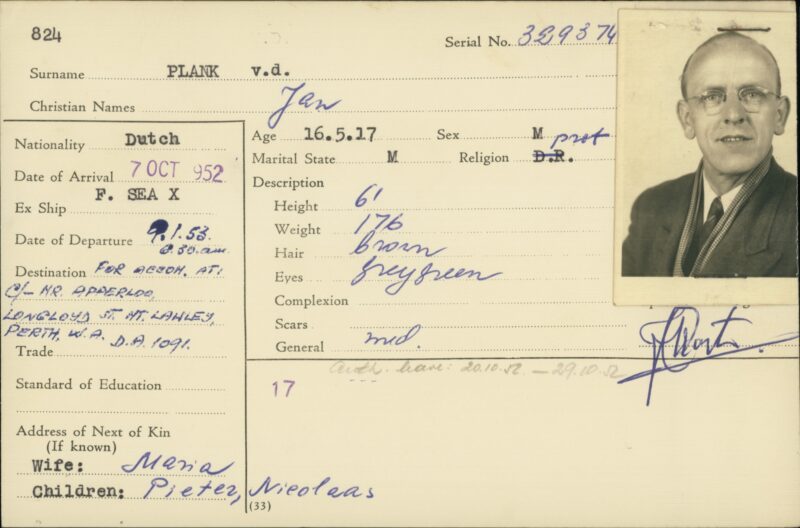 824
Serial No. 329374
Surname PLANK v.d.
Christian Names Jan
Nationality Dutch
Date of Arrival 7 OCT 952
Ex Ship F. SEA X
Date of Departure 9.1.53.
8.30.am.
Destination FOR ACCOM. AT:
C/- MR. APPERLOO,
LONGLOYD ST. MT. LAWLEY,
PERTH, W.A. D.A. 1091.
Trade
Standard of Education
Address of Next of Kin
(If known)
Wife: Maria
Children: Pieter, Nicolaas
Age 16.5.17 Sex M
Marital State M Religion D.R. prot
Description
Height 6'
Weight 176
Hair brown
Eyes greygreen
Complexion
Scars
General med.
Auth. leave: 20.10.52 — 29.10.52
17
(33)